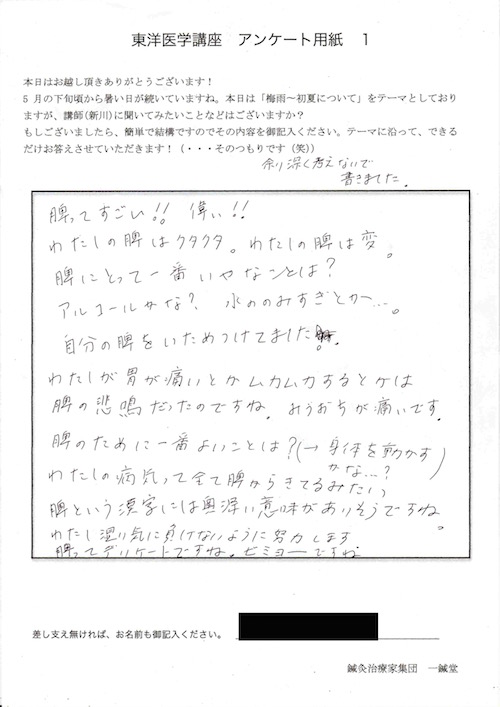 東洋医学講座　アンケート用紙　1
本日はお越し頂きありがとうございます！
5月の下旬頃から暑い日が続いていますね。本日は「梅雨～初夏について」をテーマとしており
ますが、講師(新川)に聞いてみたいことなどはございますか？
もしございましたら、簡単で結構ですのでその内容を御記入ください。テーマに沿って、できる
だけお答えさせていただきます！（・・・そのつもりです（笑））
余り深く考えないで
書きました。
脾ってすごい!! 偉い!!
わたしの脾はクタクタ。わたしの脾は変。
脾にとって一番いやなことは？
アルコールかな？ 水ののみすぎとか…。
自分の脾をいためつけてました。
わたしが胃が痛いとかムカムカするとかは
脾の悲鳴だったのですね。みぞおちが痛いです。
脾のために一番よいことは？(→身体を動かす
かな…？)
わたしの病気って全て脾からきてるみたい。
脾という漢字には奥深い意味がありそうですね。
わたし湿気に負けないように努力します
脾ってデリケートですね。ビミョーですね
差し支え無ければ、お名前も御記入ください。
鍼灸治療家集団　一鍼堂